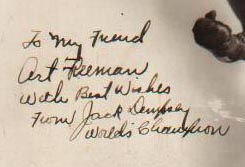 To My Friend
Art Freeman
With Best Wishes
From Jack Dempsey
Worlds Champion